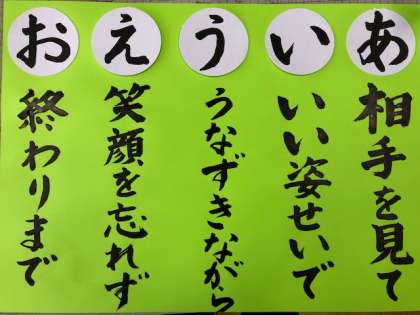 あ
相手を見て
い
いい姿せいで
う
うなずきながら
え
笑顔を忘れず
お
終わりまで